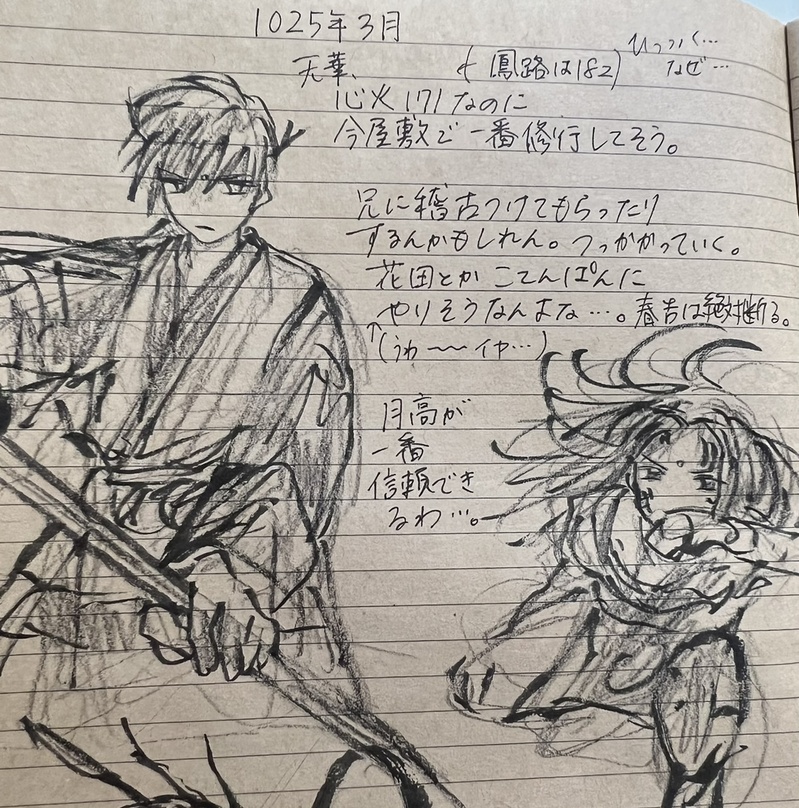 1025年3月
天華、
(鳳路は182)
ひっっく…
なぜ…
心火171なのに
今屋敷で一番修行してそう。
兄に稽古つけてもらったり
するんかもしれん。つっかかっていく。
花国とか こてんぱんに
やりそうなんよな…。春吉は絶対断る。
↑(うわ〜〜イヤ…)
月高が
一番
信頼でき
るわ…。